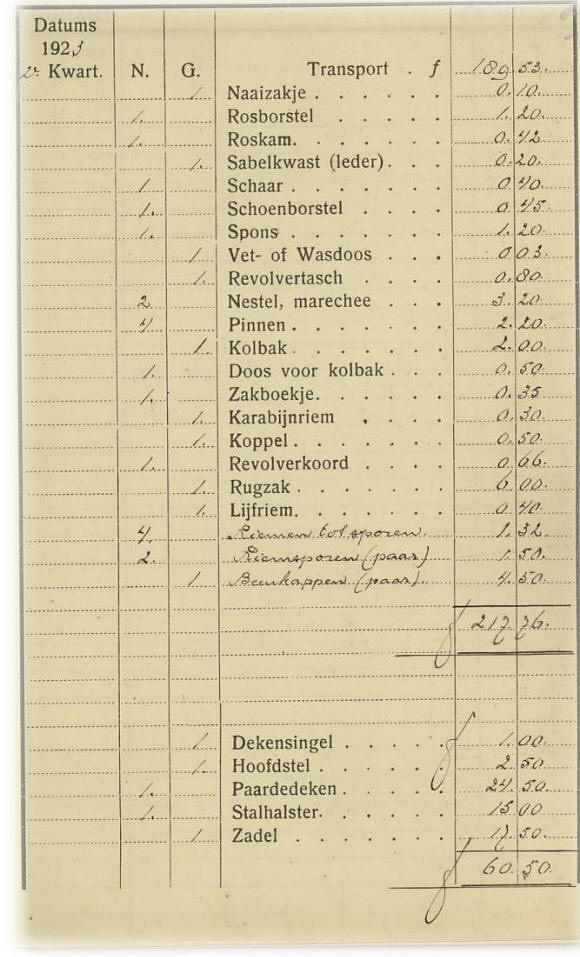 Datums
1923
2e Kwart. N. G. Transport . f 189 53.
1. Naaizakje . . . . . . 0. 10.
1. Rosborstel . . . . . 1. 20.
1. Roskam. . . . . . . 0. 42
1. Sabelkwast (leder) . . . 0. 20.
1 Schaar . . . . . . . 0 40.
1. Schoenborstel . . . . 0 45.
1. Spons . . . . . . . 1. 20
1 Vet- of Wasdoos . . . 0 03.
1. Revolvertasch . . . . 0. 80
2 Nestel, marechee . . . 3. 20
4 Pinnen . . . . . . . 2. 20.
1. Kolbak . . . . . . . 2. 00
1. Doos voor kolbak . . . 0. 50
1. Zakboekje. . . . . . 0. 35
1. Karabijnriem . . . . 0. 30
1. Koppel . . . . . . . 0. 50.
1. Revolverkoord . . . . 0. 66.
1. Rugzak . . . . . . . 6 00.
1. Lijfriem. . . . . . . 0. 40
4. Riemen tot sporen. 1. 32
2. Riemsporen (paar) 1. 50.
1 Beenkappen (paar). 4. 50.
f 217. 76.
1 Dekensingel . . . . . 1. 00.
1. Hoofdstel . . . . . . 2 50
1. Paardedeken . . . . . 24. 50.
1. Stalhalster. . . . . . 15 00
1 Zadel . . . . . . . 17. 50.
f 60. 50.